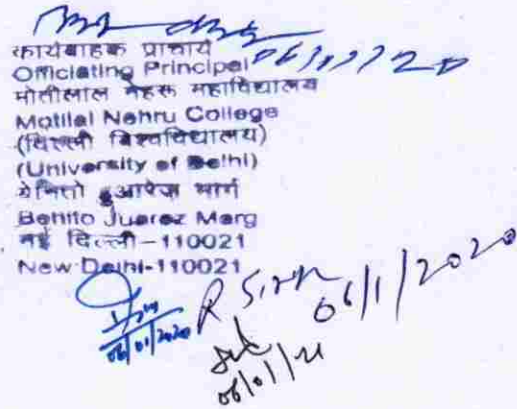 06/1/20
कार्यवाहक प्राचार्य
Officiating Principal
मोतीलाल नेहरू महाविद्यालय
Motilal Nehru College
(दिल्ली विश्वविद्यालय)
(University of Delhi)
बेनितो जुआरेज़ मार्ग
Benito Juarez Marg
नई दिल्ली-110021
New Delhi-110021
R Singh 06/1/2020
06/01/2020
06/01/21